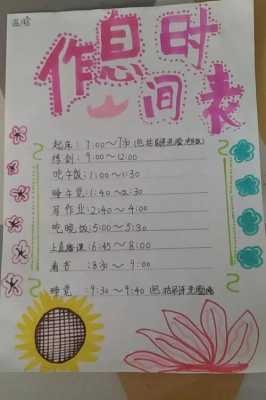 作息时间表
起床：7:00～7:30(包括刷牙洗脸
练剑：9:00～12:00
吃午饭：1:00～1:30
睡午觉：1:40～2:30
写作业：2:40～4:00
吃晚饭：5:00～5:30
上直播课：6:45～8:00
看书：8:30～9:00
睡觉：9:30～9:40(包括刷牙洗脸